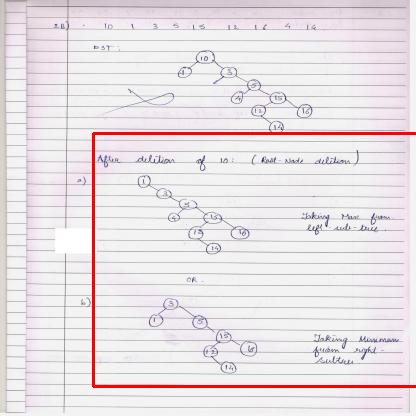 2B) . 10 1 3 5 15 12 16 4 14
BST :
10
1 3
5
4 15
12 16
14
After deletion of 10: (Root-Node deletion)
a)
1
3
5
4 15
12 16
14
Taking Max from
left sub-tree.
OR.
b)
3
1 5
15
12 16
14
Taking Minimum
from right-
subtree